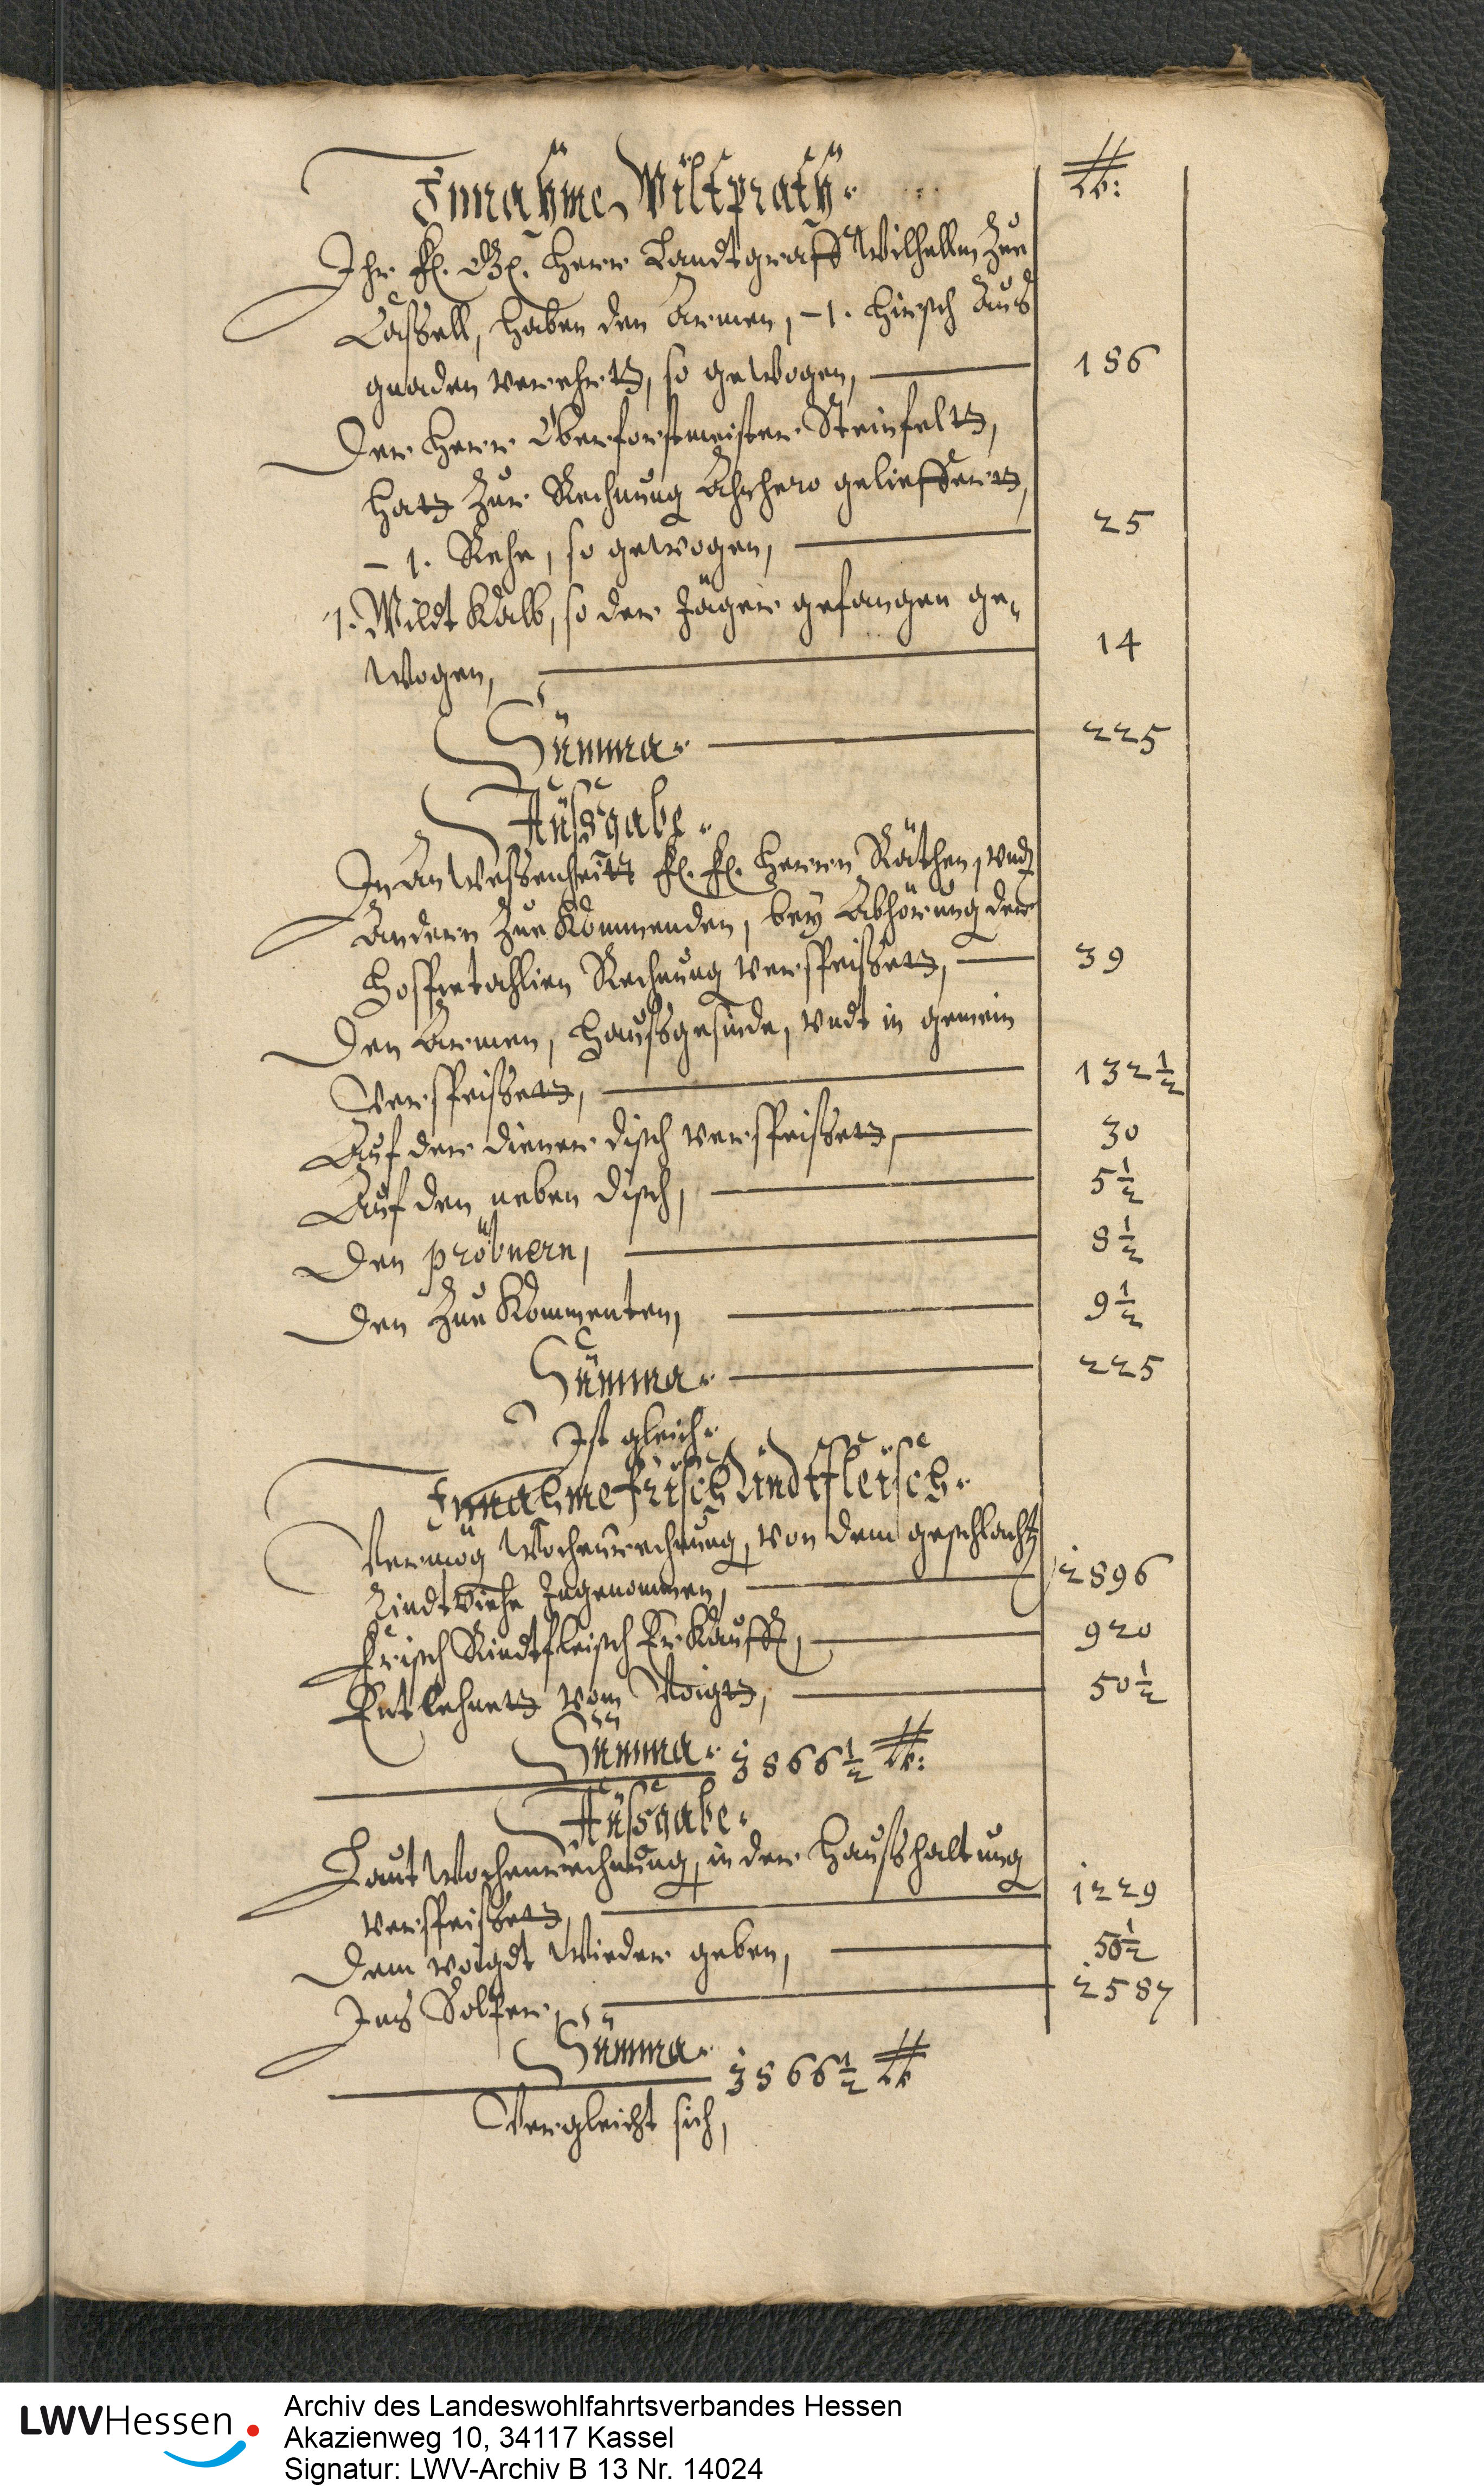 Innahme Wiltprath. lb:
Ihr fl. Gl. Herr Landtgraff Wilhellm Zue
Cassell, haben den Armen, – 1. Hirsch Aus
gnaden verehrtt, so gewogen, — 186
Der Herr Oberforstmeister Steinfeltt,
hatt Zur Rechnung Anhero gelieffertt,
– 1. Rehe, so gewogen, — 25
1. Wildt Kalb, so der Jäger gefangen ge-
wogen, — 14
Summa. — 225
Aussgabe.
In Anwessenheitt fl. fl. Herrn Räthen, vndt
Andern Zue Kommenden, bey Abhörung der
Hospetahlien Rechnung verspeissett, — 39
Den Armen, Haussgesinde, vndt in gemein
Verspeissett, — 132 1/2
Auf der diener disch verspeissett, — 30
Auf den neben disch, — 5 1/2
Den pröbnern, — 8 1/2
Den Zue Kommenten, — 9 1/2
Summa. — 225
Ist gleich.
Innahme frisch Rindtfleisch.
Vermög Wochenrechnung, von dem geschlacht
Rindtviehe Ingenommen, — 2896
Frisch Rindtfleisch Er Kaufft, — 920
Entlehnett vom Voigtt, — 50 1/2
Summa. 3866 1/2 lb:
Aussgabe.
Laut Wochenrechnung, in der Hausshaltung
verspeissett, — 1229
Dem voigdt Wieder geben, — 50 1/2
Ins Solper, — 2587
Summa. 3866 1/2 lb
Vergleicht sich,
LWVHessen
Archiv des Landeswohlfahrtsverbandes Hessen
Akazienweg 10, 34117 Kassel
Signatur: LWV-Archiv B 13 Nr. 14024